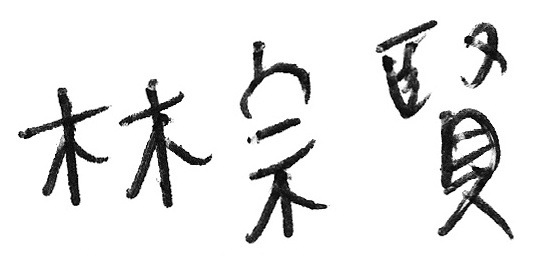 林宗賢